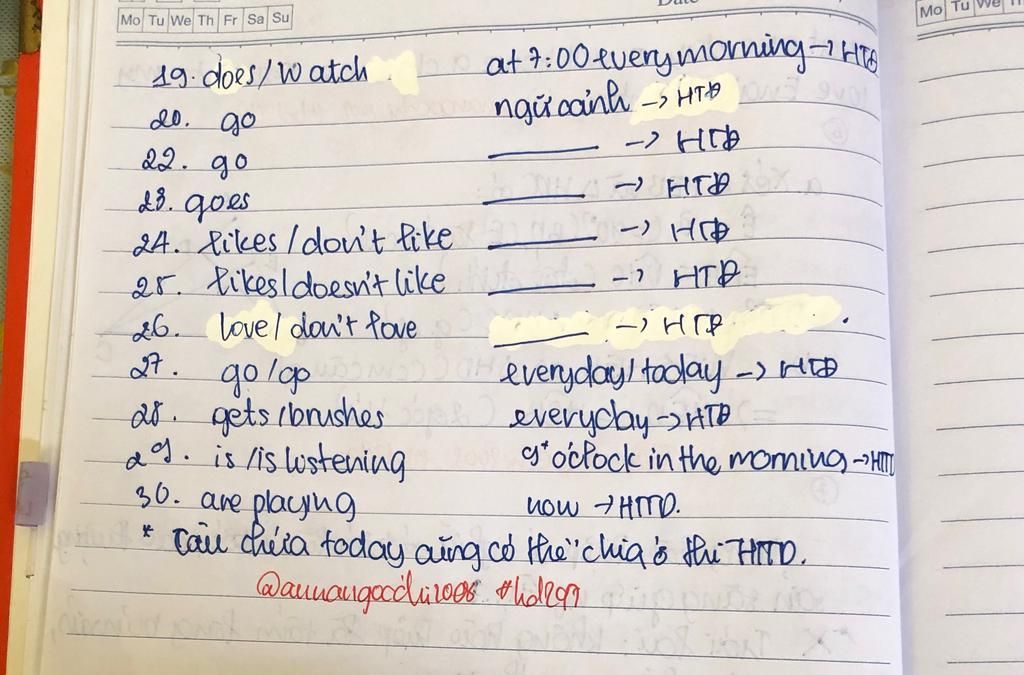 Date
Mo Tu We Th Fr Sa Su
Mo Tu We Th
19. does/watch at 7:00 every morning -> HTĐ
20. go ngữ cảnh -> HTĐ
22. go ——— -> HTĐ
23. goes ——— -> HTĐ
24. likes/don't like ——— -> HTĐ
25. likes/doesn't like ——— -> HTĐ
26. love/don't love ——— -> HTĐ
27. go/go everyday/today -> HTĐ
28. gets/brushes everyday -> HTĐ
29. is/is listening 9* o'clock in the morning -> HTTD
30. are playing now -> HTTD.
* Câu chứa today cũng có thể chia ở thì HTTD.